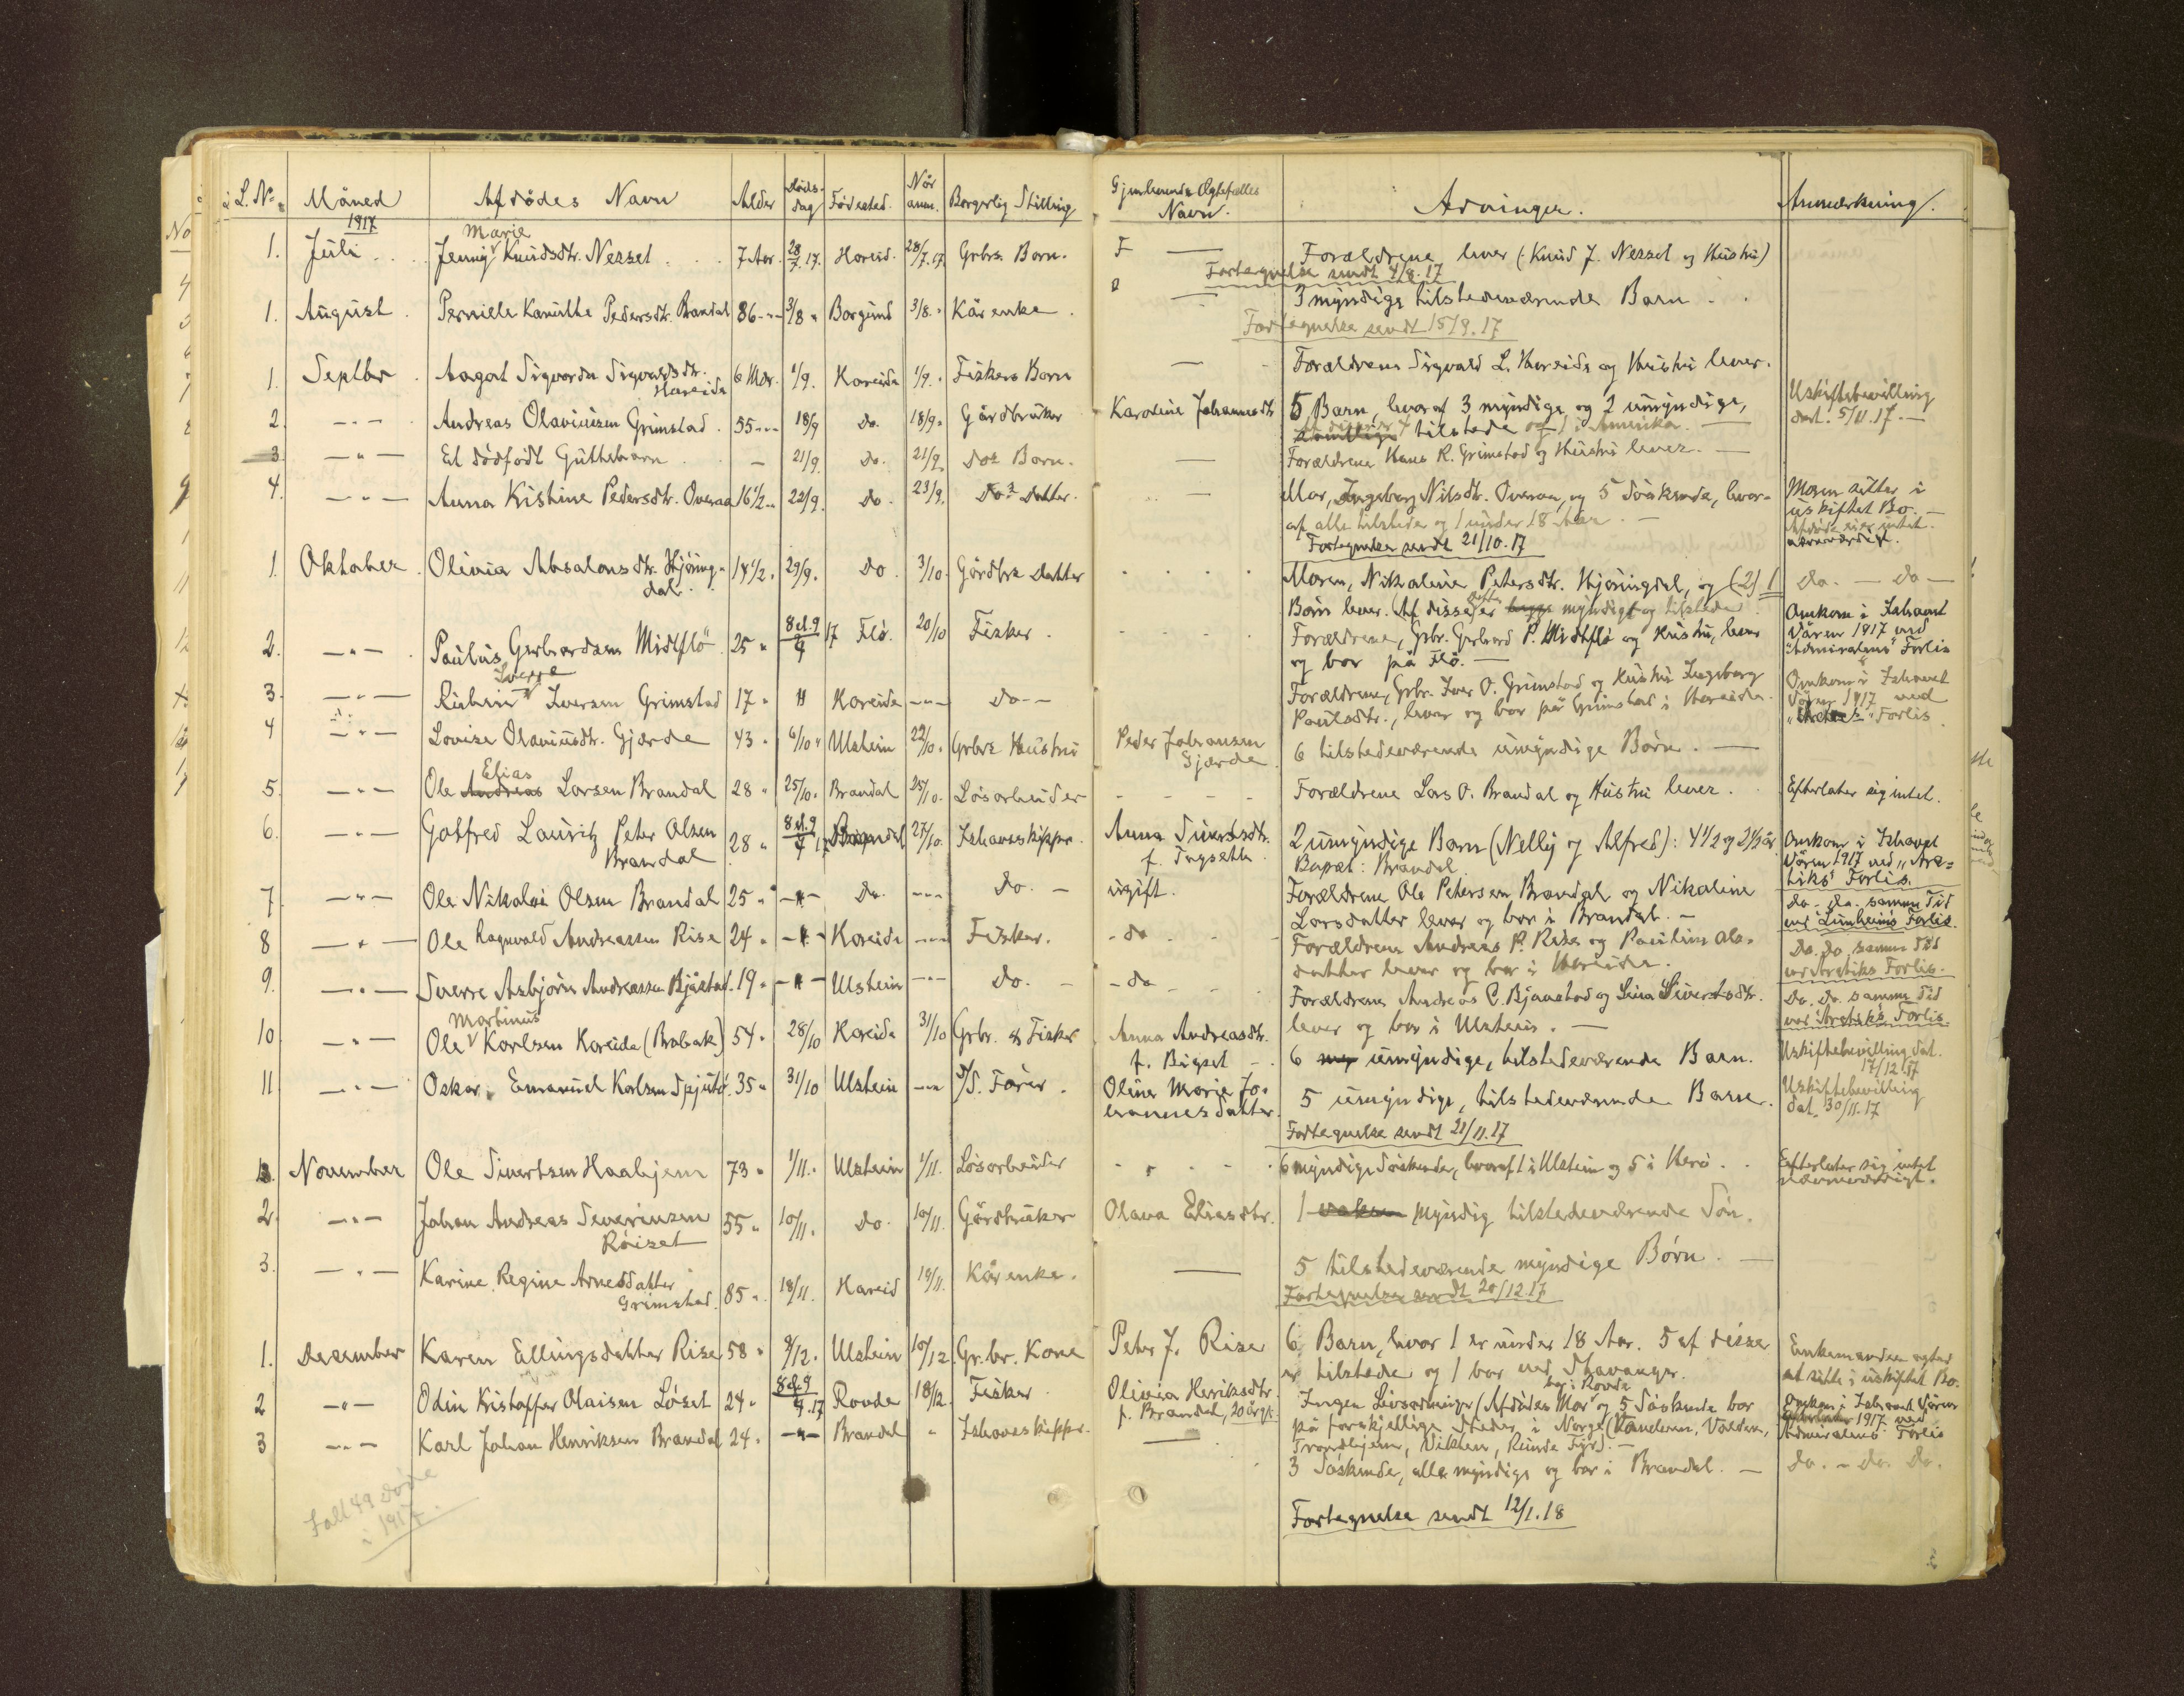 L. No. Måned Afdödes Navn Alder Dödsdag Födested. Når anm. Borgerlig Stilling Gjenlevende Ægtefælles Navn. Arvinger. Anmærkning.
1917
1. Juli Jenny Marie Knudsdtr. Nesset 7 Aar. 28/7.17. Hareid. 28/7.17. Grbrs. Barn. Forældrene lever (Knud J. Nesset og Hustru)
Fortegnelse sendt 4/8.17
1. August Pernille Kanutte Pedersdtr. Brandal 86 -"- 3/8 " Borgund 3/8. " Kårenke. — 3 myndige tilstedeværende Barn.
Fortegnelse sendt 15/9.17
1. Septbr Aagot Sigvarda Sigvaldsdtr. Hareide 6 Mdr. 1/9. Hareide 1/9. " Fiskers Barn — Forældrene Sigvald L. Hareide og Hustru lever.
2. -"- Andreas Olaviusen Grimstad. 55 -"- 18/9 Do. 18/9 " Gårdbruker Karoline Johannesdtr 5 Barn, hvoraf 3 myndige og 2 umyndige, Uskiftebevilling
tilstede og 1 i Amerika. — dat. 5/11.17. —
3. -"- Et dödfödt Guttebarn — 21/9. Do. 21/9. Dos Barn. — Forældrene Hans R. Grimstad og Hustru lever. —
4. -"- Anna Kistine Pedersdtr. Overaa 16 1/2 " 22/9. Do. 23/9. Dos Datter. — Mor, Ingeborg Nilsdtr. Overaa, og 5 Söskende, hvor- Moren sitter i
af alle tilstede og 1 under 18 Aar. — uskiftet Bo. —
Afdöde eier intet
Fortegnelse sendt 21/10.17 nævneværdigt.
1. Oktober Olivia Absalonsdtr. Hjöring- 14 1/2 " 29/9. Do. 3/10. Gårdbrs Datter Moren, Nikoline Petersdtr. Hjöringdal, og (2) 1 Do. — Do —
dal. Börn lever. Af disse er begge myndige og tilstede.
2. -"- Paulus Gerhardsen Midtflö 25 " 8 el. 9/4 17 Flö. 20/10 Fisker. Forældrene, Grbr. Gerhard P. Midtflö og Hustru, lever Omkom i Ishavet
og bor på Flö. — Våren 1917 ved
"Admiralens" Forlis
3. -"- Sverre Iversen Grimstad 17 " " Hareide -"- Do -- Forældrene, Grbr. Iver O. Grimstad og Hustru Ingeborg Omkom i Ishavet
Paulsdtr., lever og bor på Grimstad i Hareide. Våren 1917 ved
Forlis.
4 -"- Lovise Olaviusdtr. Gjærde 43 " 6/10 " Ulstein 22/10. Grbrs Hustru Peder Johansen Gjærde 6 tilstedeværende umyndige Börn. —
5. -"- Ole Andreas Elias Larsen Brandal 28 " 25/10. Brandal 25/10. Lösarbeider Forældrene Lars O. Brandal og Hustru lever. Efterlater sig intet.
6. -"- Gotfred Lauritz Peter Olsen Brandal 28 " 8 el. 9/4 17 Brandal 27/10. Ishavsskipper. Anna Sivertsdtr. 2 umyndige Barn (Nelly og Alfred): 4 1/2 og 2 1/2 år. Omkom i Ishavet
Bopæl: Brandal Våren 1917 ved "Ark-
tiks" Forlis.
7. -"- Ole Nikolai Olsen Brandal 25 " -"- Do. -"- Do. — ugift. Forældrene Ole Petersen Brandal og Nikoline Do. Do. samme Tid
Larsdatter lever og bor i Brandal. — ved Forlis.
8 -"- Ole Ragnvald Andreassen Rise 24 " -"- Hareide -"- Fisker. - do Forældrene Andreas P. Rise og Pauline Ols- Do. Do. samme Tid
datter lever og bor i Hareide. ved Arktiks Forlis.
9. -"- Sverre Asbjörn Andreassen Bjåstad. 19 " -"- Ulstein -"- Do. — - do Forældrene Andreas C. Bjaastad og Lina Sivertsdtr. Do. Do. samme Tid
lever og bor i Ulstein. — ved Arktiks Forlis.
10. -"- Ole Martinus Karlsen Hareide (Brobak) 54 " 28/10 Hareide 31/10 Grbr. & Fisker Anna Andreasdtr. f. Bigset 6 my umyndige, tilstedeværende Barn. Uskiftebevilling dat.
17/12.17
11. -"- Oskar Emanuel Karlsen 35 " 31/10 Ulstein -"- Oline Marie Jo- 5 umyndige, tilstedeværende Barn. Uskiftebevilling
hannesdatter. dat. 30/11.17
Fortegnelse sendt 21/11.17
1. November Ole Sivertsen Haahjem 73 " 1/11. Ulstein 1/11. Lösarbeider 6 myndige Söskende, hvoraf 1 i Ulstein og 5 i Herö. Efterlater sig intet
nævneværdigt.
2. -"- Johan Andreas Severinsen Röiset 55 " 10/11. Do. 10/11. Gårdbruker Olava Eliasdtr. 1 voksen myndig tilstedeværende Sön.
3. -"- Karine Regine Arnesdatter Grimstad. 85 " 18/11. Hareid 19/11. Kårenke. — 5 tilstedeværende myndige Börn. —
Fortegnelse sendt 20/12.17
1. Desember Karen Ellingsdatter Rise 58 " 9/12. Ulstein 10/12 Gr.br. Kone Peter J. Rise 6 Barn, hvor 1 er under 18 Aar. 5 af disse Enkemanden agter
er tilstede og 1 bor ved Stavanger. at sitte i uskiftet Bo.
2 -"- Odin Kristoffer Olaisen Löset 24 " 8 el. 9/4.17 Rovde 18/12. Fisker. Olivia Henriksdtr. f. Brandal, 20 årg. Ingen Livsarvinger (Afdödes Mor bor i Rovde og 5 Söskende bor Omkom i Ishavet Våren
på forskjellige Steder i Norge ( Volden, 1917 ved
Trondhjem, Vikten, Runde Fyr). — Admiralens Forlis
3 -"- Karl Johan Henriksen Brandal 24 " -"- Brandal " Ishavsskipper. — 3 Söskende, alle myndige og bor i Brandal. — Do. - Do. Do.
Fortegnelse sendt 12/1.18
Ialt 49 döde
i 1917.